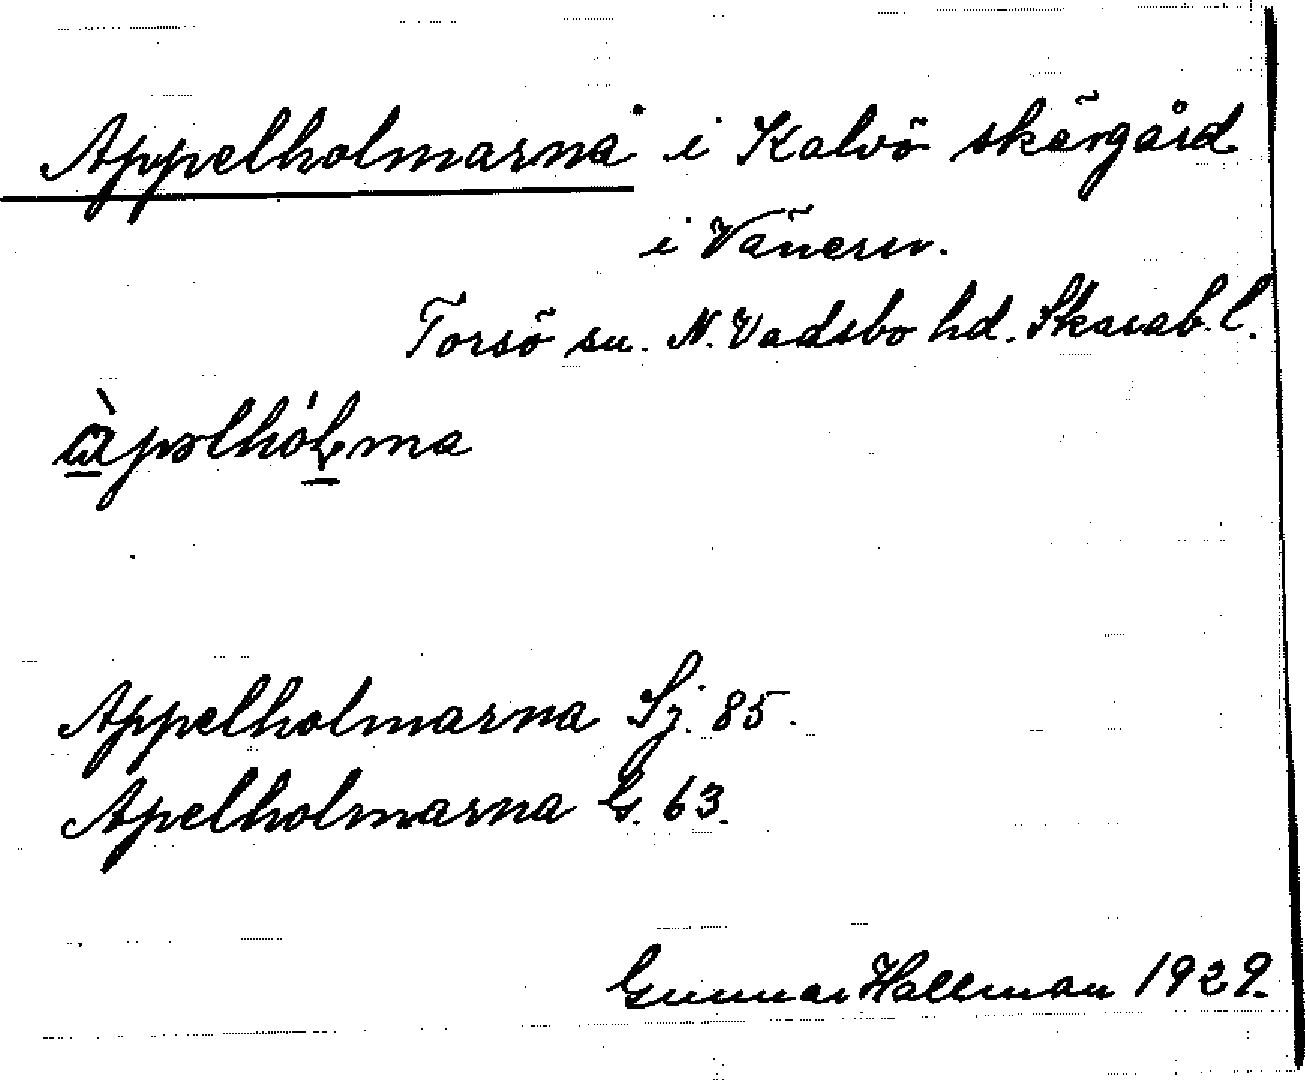 Appelholmarna i Kalvö skärgård
i Vänern.
Torsö sn. N. Vadsbo hd. Skarab. l.
àpəlhólma
Appelholmarna Sj. 85.
Apelholmarna G. 63.
Gunnar Hallman 1929.